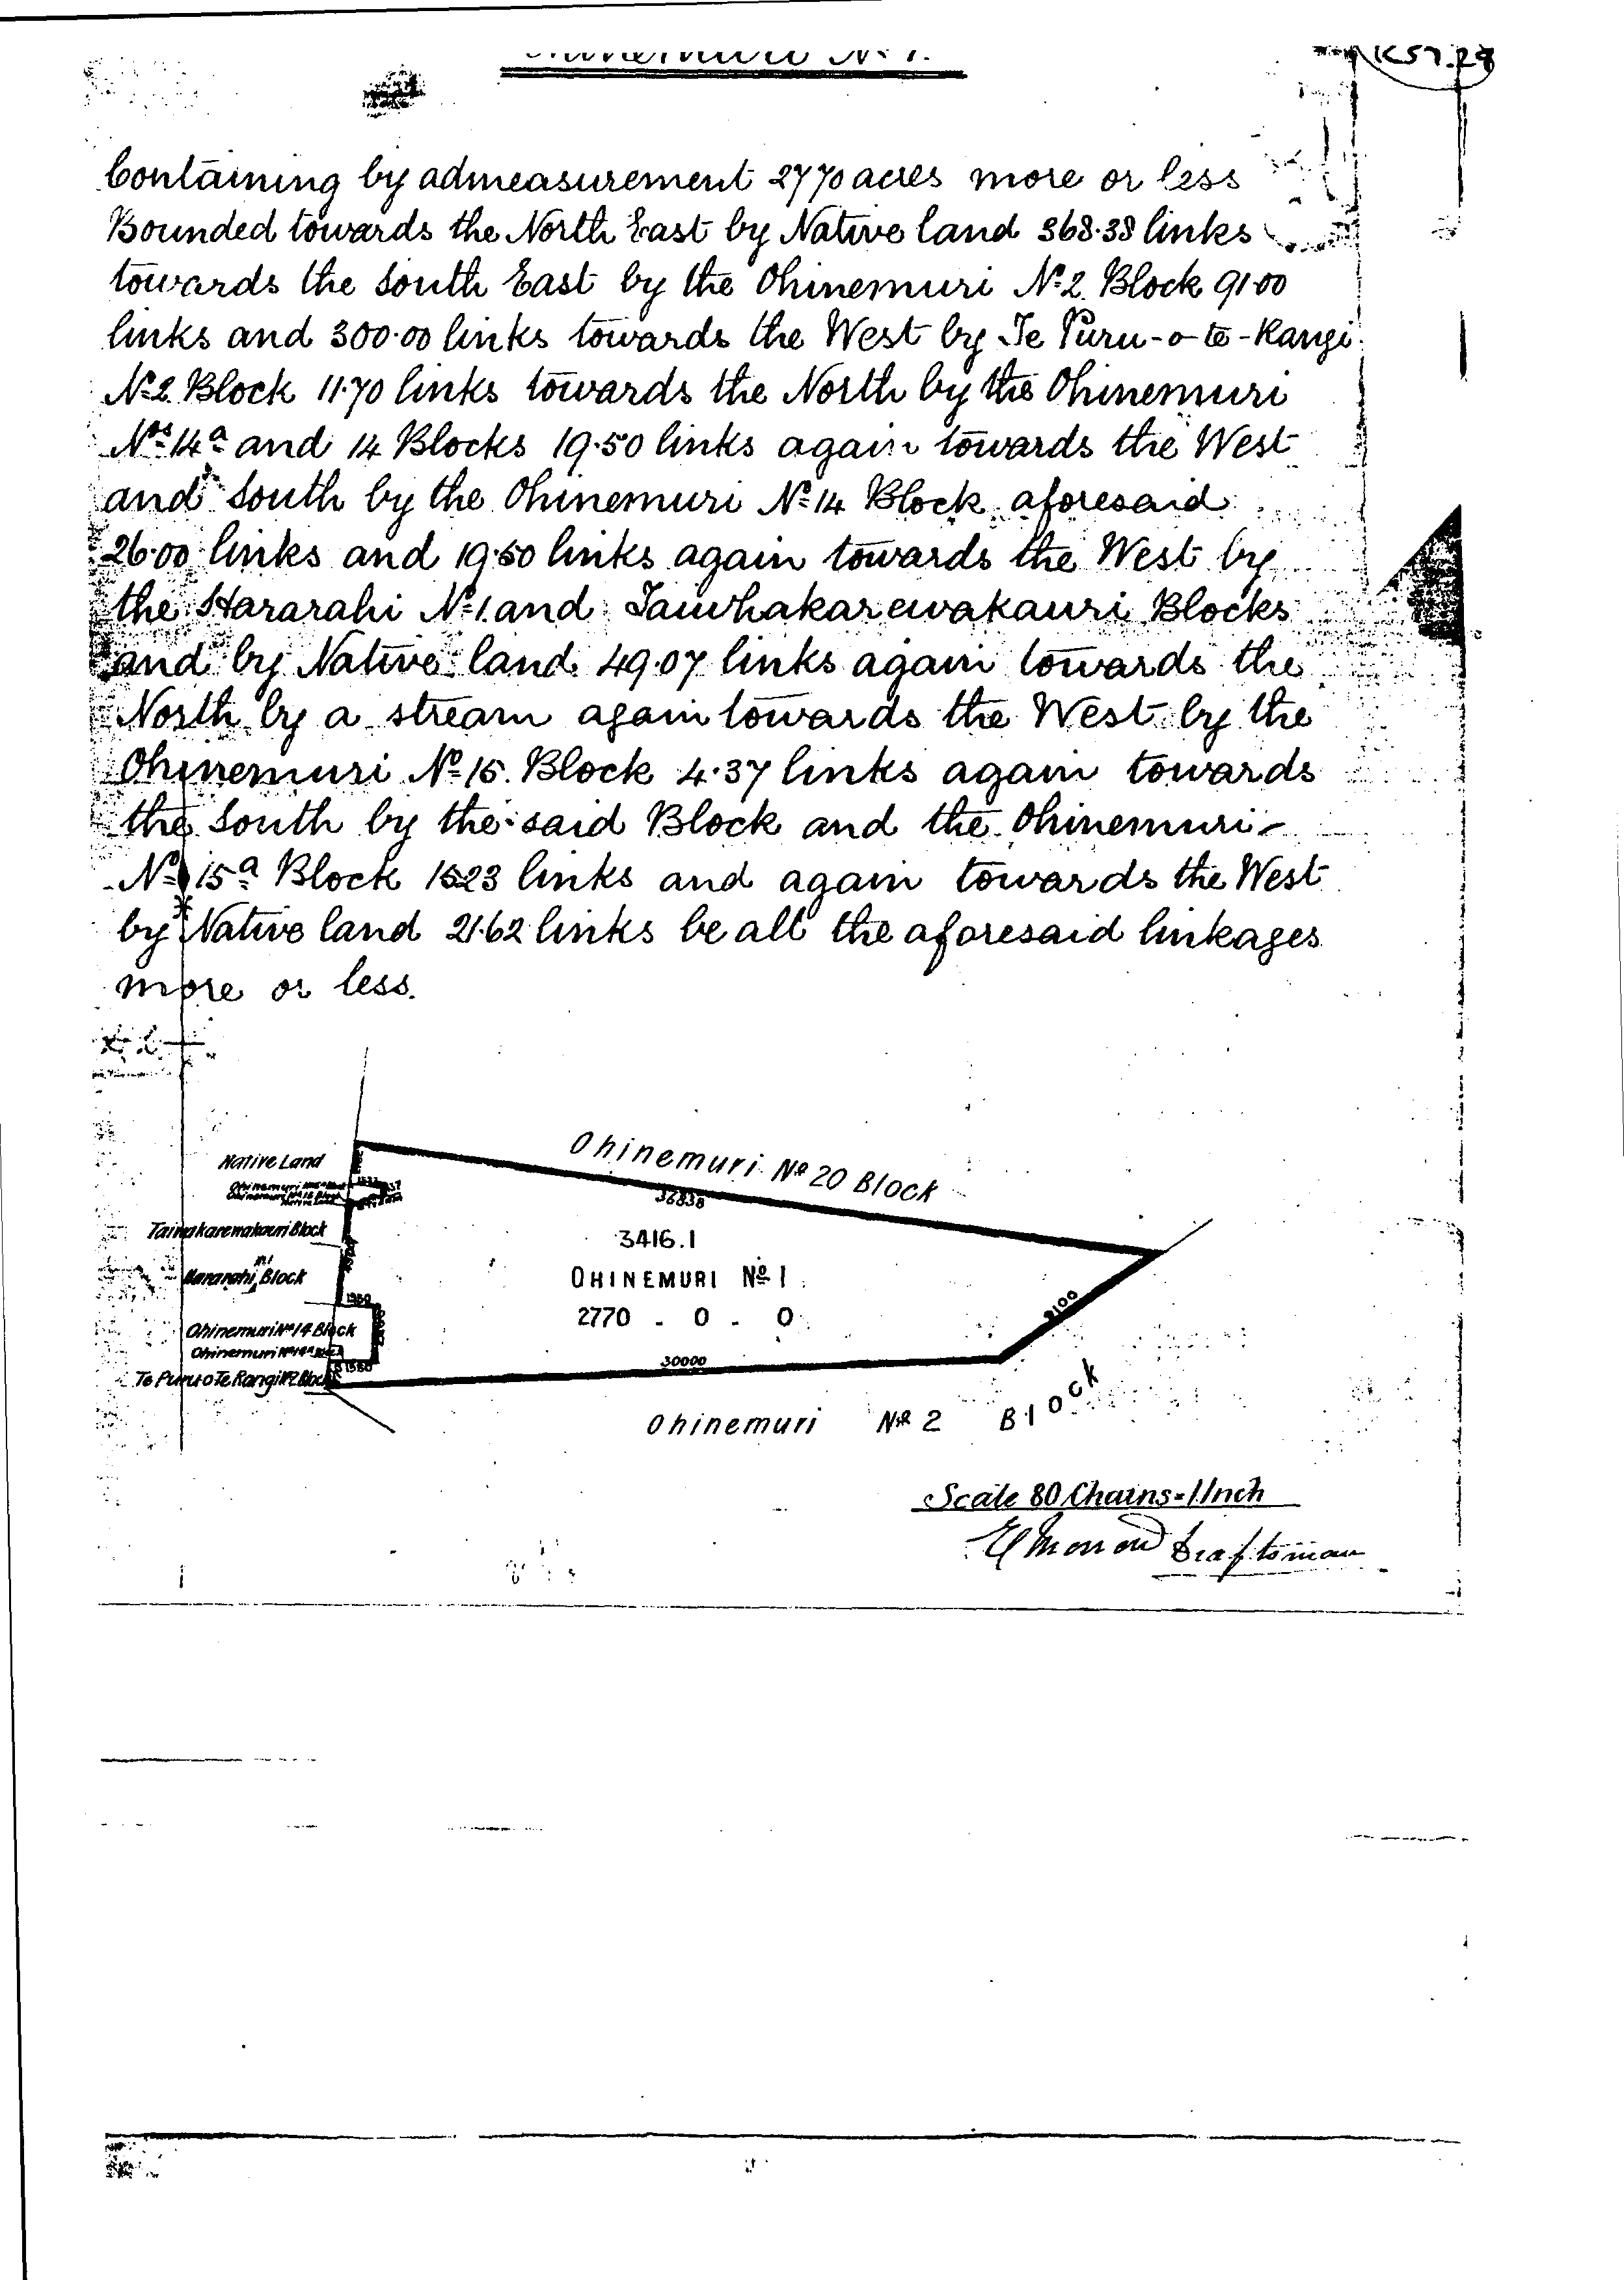 Ohinemuri Nº 1.
Containing by admeasurement 2770 acres more or less
Bounded towards the North East by Native land 368.38 links
towards the South East by the Ohinemuri Nº 2 Block 91.00
links and 300.00 links towards the West by Te Puru-o-te-Rangi
Nº 2 Block 11.70 links towards the North by the Ohinemuri
Nos 14a and 14 Blocks 19.50 links again towards the West
and South by the Ohinemuri Nº 14 Block aforesaid
26.00 links and 19.50 links again towards the West by
the Hararahi Nº 1. and Taiwhakarewakauri Blocks
and by Native land 49.07 links again towards the
North by a stream again towards the West by the
Ohinemuri Nº 15. Block 4.37 links again towards
the South by the said Block and the Ohinemuri
Nº 15a Block 1523 links and again towards the West
by Native land 21.62 links be all the aforesaid linkages
more or less.
Ohinemuri Nº 20 Block
36838
Native Land
3416.1
OHINEMURI Nº 1
2770 - 0 - 0
Block
Ohinemuri Nº 14 Block
9100
30000
Te Puru o Te Rangi Nº 2 Block
Ohinemuri Nº 2 Block
Scale 80 Chains = 1 Inch
Draftsman